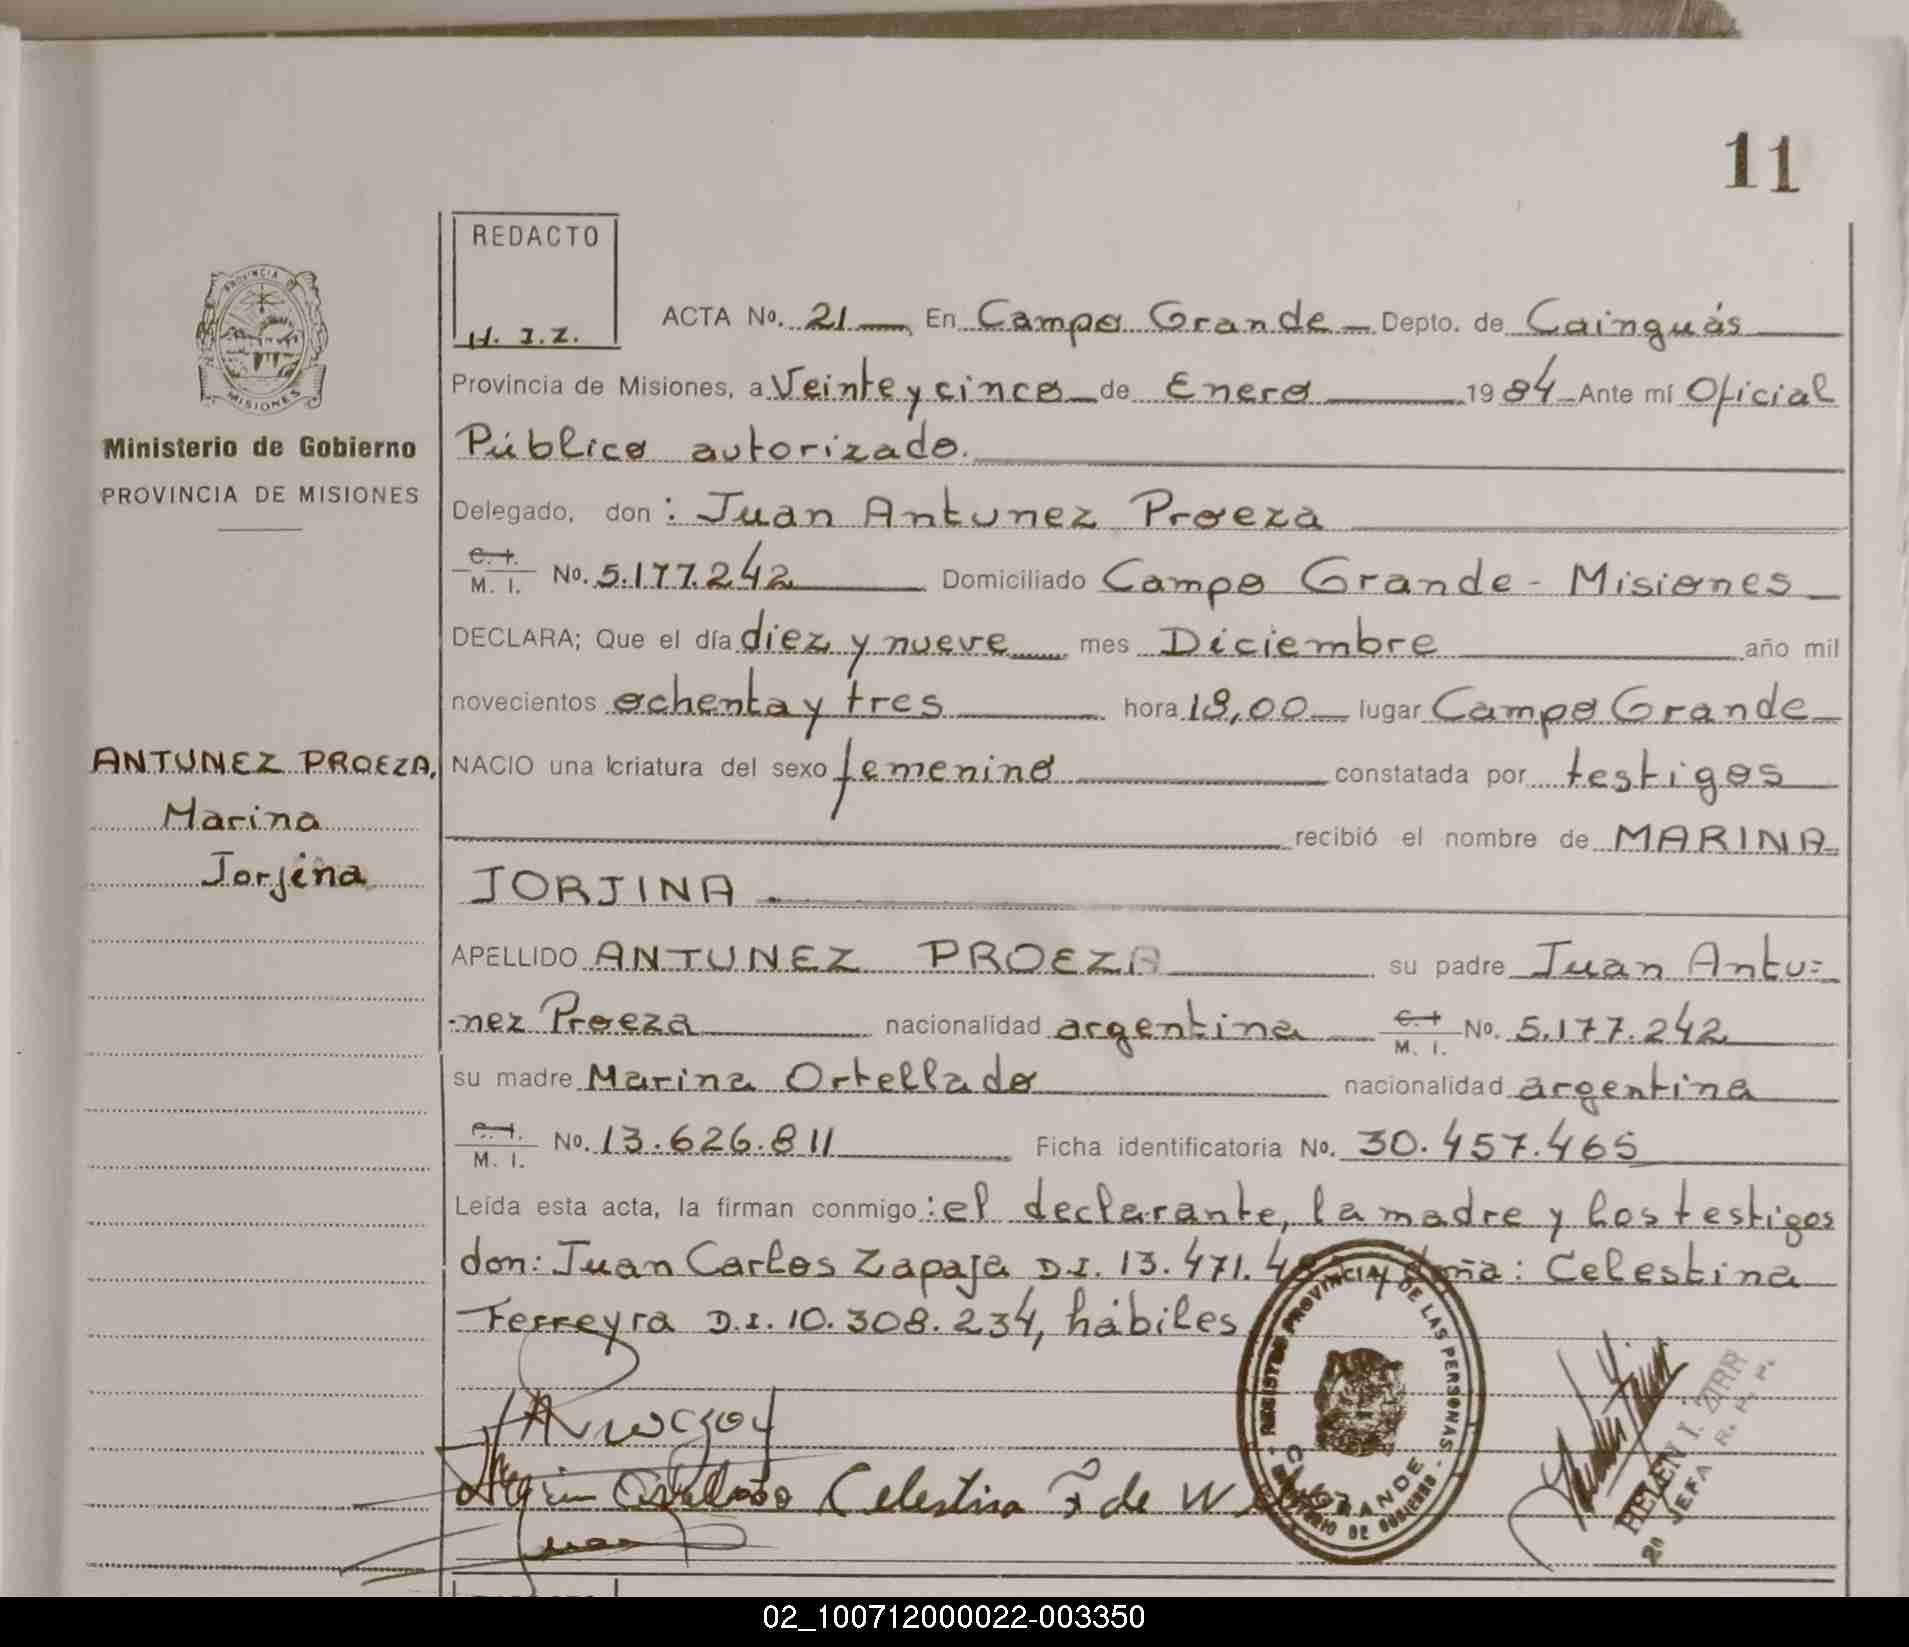 11
REDACTO
H. I. Z.
PROVINCIA DE
MISIONES
Ministerio de Gobierno
PROVINCIA DE MISIONES
ANTUNEZ PROEZA,
Marina
Jorjina
ACTA No. 21 En Campo Grande Depto. de Cainguás
Provincia de Misiones, a Veinte y cinco de Enero 1984 Ante mí Oficial
Público autorizado.
Delegado, don: Juan Antunez Proeza
C. I. M. I. No. 5.177.242 Domiciliado Campo Grande - Misiones
DECLARA; Que el día diez y nueve mes Diciembre año mil
novecientos ochenta y tres hora 18,00 lugar Campo Grande
NACIO una criatura del sexo femenino constatada por testigos
recibió el nombre de MARINA
JORJINA
APELLIDO ANTUNEZ PROEZA su padre Juan Antu=
-nez Proeza nacionalidad argentina C. I. M. I. No. 5.177.242
su madre Marina Ortellado nacionalidad argentina
C. I. M. I. No. 13.626.811 Ficha identificatoria No. 30.457.465
Leída esta acta, la firman conmigo: el declarante, la madre y los testigos
don: Juan Carlos Zapaja D.I. 13.471.4 y doña: Celestina
Ferreyra D.I. 10.308.234, hábiles
Celestina F de W
REGISTRO PROVINCIAL DE LAS PERSONAS
C. GRANDE
MINISTERIO DE GOBIERNO
HELEN I. ZIRR
JEFA R. P. P.
02_100712000022-003350